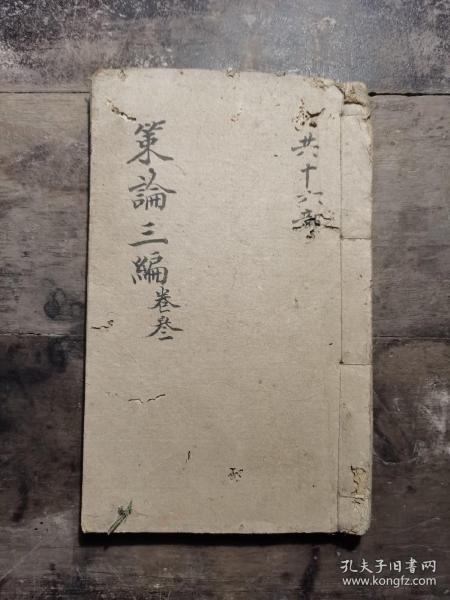 共十六部
策論三編卷叁
孔夫子旧书网
www.kongfz.com